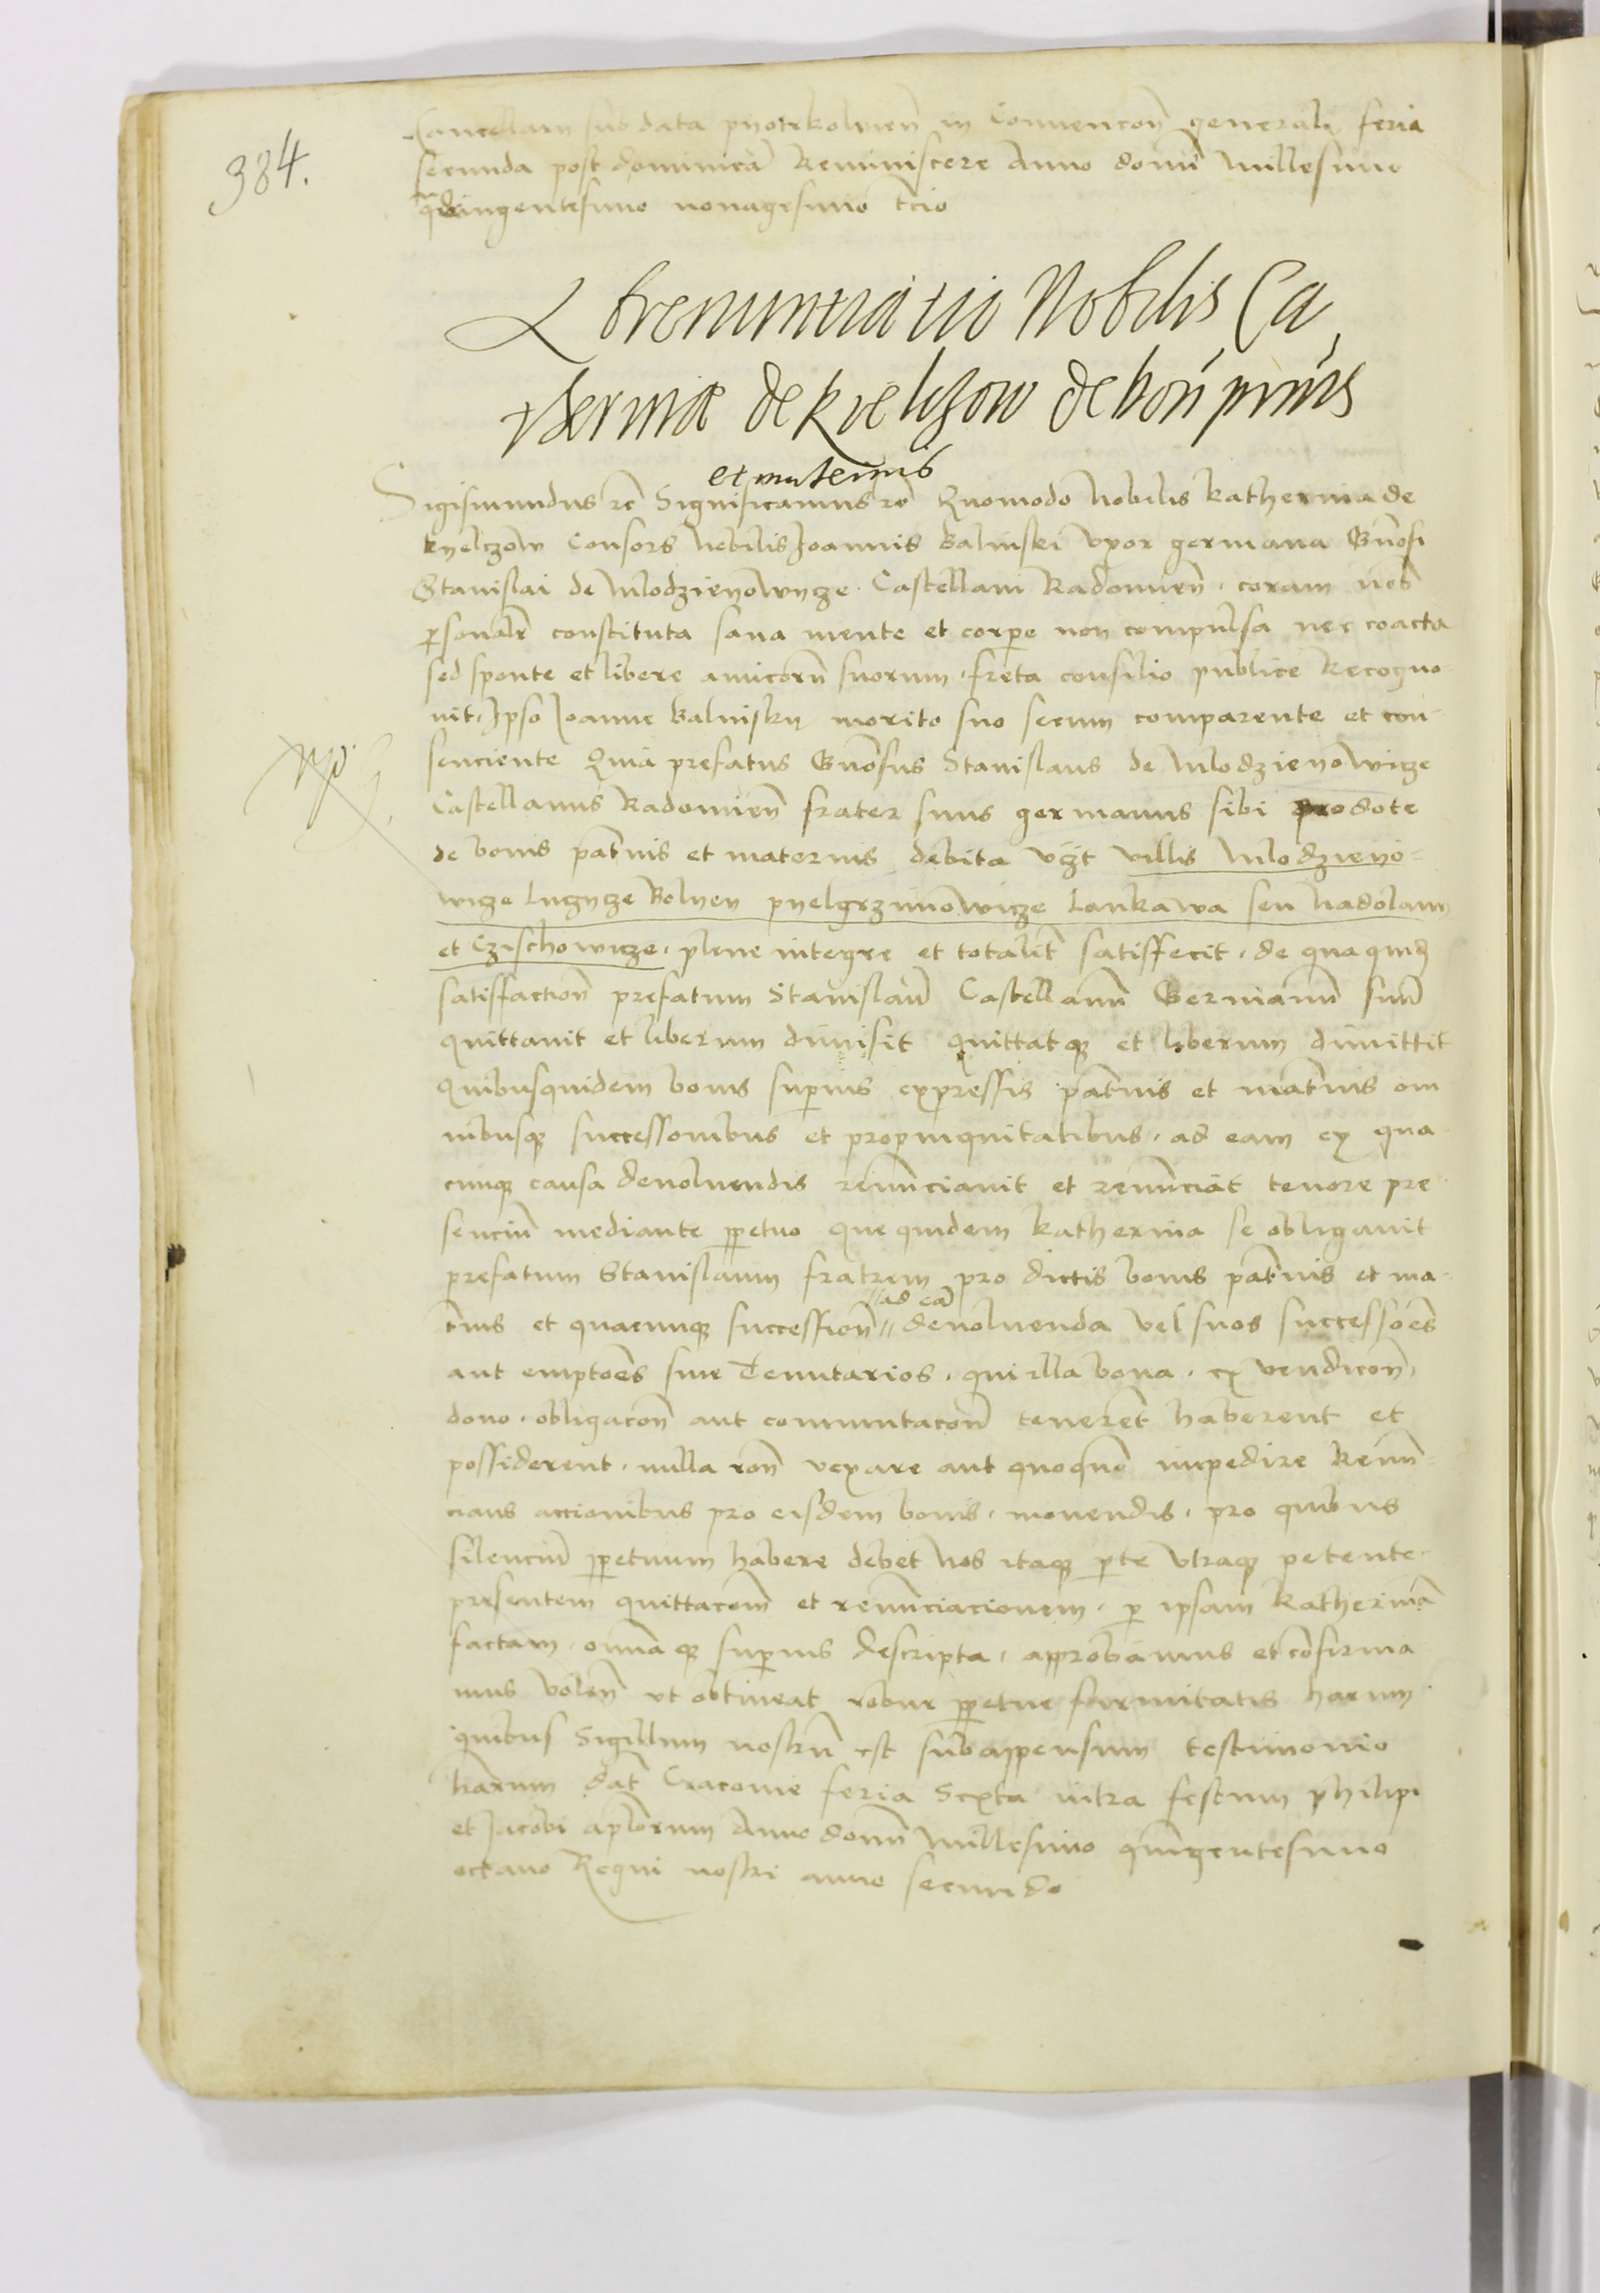 384.
Cancellarij sub data pyotrkowien in Convencon generali feria
secunda post dominicā Reminiscere Anno domi Millesimo
qdringentesimo nonagesimo tcio
Abrenuntiatio Nobilis Ca,
therinæ de Kielczow de bonis prnis
et maternis
Sigismundus rc Significamus rc Quomodo Nobilis Katherina de
kyelczow Consors Nobilis Joannis Balinski vxor germana Gnosi
Stanislai de Mlodzieyowycze Castellani Radomien coram nob
psonalr constituta sana mente et corpe non compulsa nec coacta
sed sponte et libere amicorū suorum freta consilio publice Recogno-
uit, Ipso Joanne Balinsky morito suo secum comparente et con-
senciente Quia prefatus Gnosus Stanislaus de Mlodzieyowicze
Castellanus Radomien frater suus germanus sibi pro dote
de bonis patnis et maternis debita vzt villis Mlodzieyo-
wicze Luczycze Bolyen pyelgrzimowicze Lankawa seu Nadolam
et Czischowicze plene integre et totalit satisfecit de qua quid
satisfaction prefatum Stanislaū Castellanū Germanū suū
quittauit et liberum dimisit quittatq et liberum dimittit
Quibusquidem bonis supius expressis patnis et matnis om
nibusq successionibus et propinquitatibus ad eam ex qua
cunq causa deuoluendis renunciauit et renunciat tenore pre
senciū mediante ppetuo que quidem Katherina se obligauit
prefatum Stanislaum fratrem pro dictis bonis patnis et ma-
tnis et quacunq succession // ad eā deuoluenda vel suos successoes
aut emptoes siue Tenutarios qui illa bona ex vendicon
dono obligacon aut commutacon tenerent haberent et
possiderent nulla ron vexare aut quoquo impedire Renū
cians actionibus pro eisdem bonis mouendis pro quibus
silenciū ppetuum habere debet Nos itaq pte vtraq petente
presentem quittacoem et renunciacionem p ipsam Katherinā
factam omia q supius descripta approbamus et confirma
mus volen vt obtineat robur ppetue firmitatis harum
quibus Sigillum nostrū est subappensum testimonio
harum dat Cracouie feria Sexta intra festum philipi
et Jacobi aplorum Anno domi Millesimo quingentesimo
octauo Regni nostri anno secundo